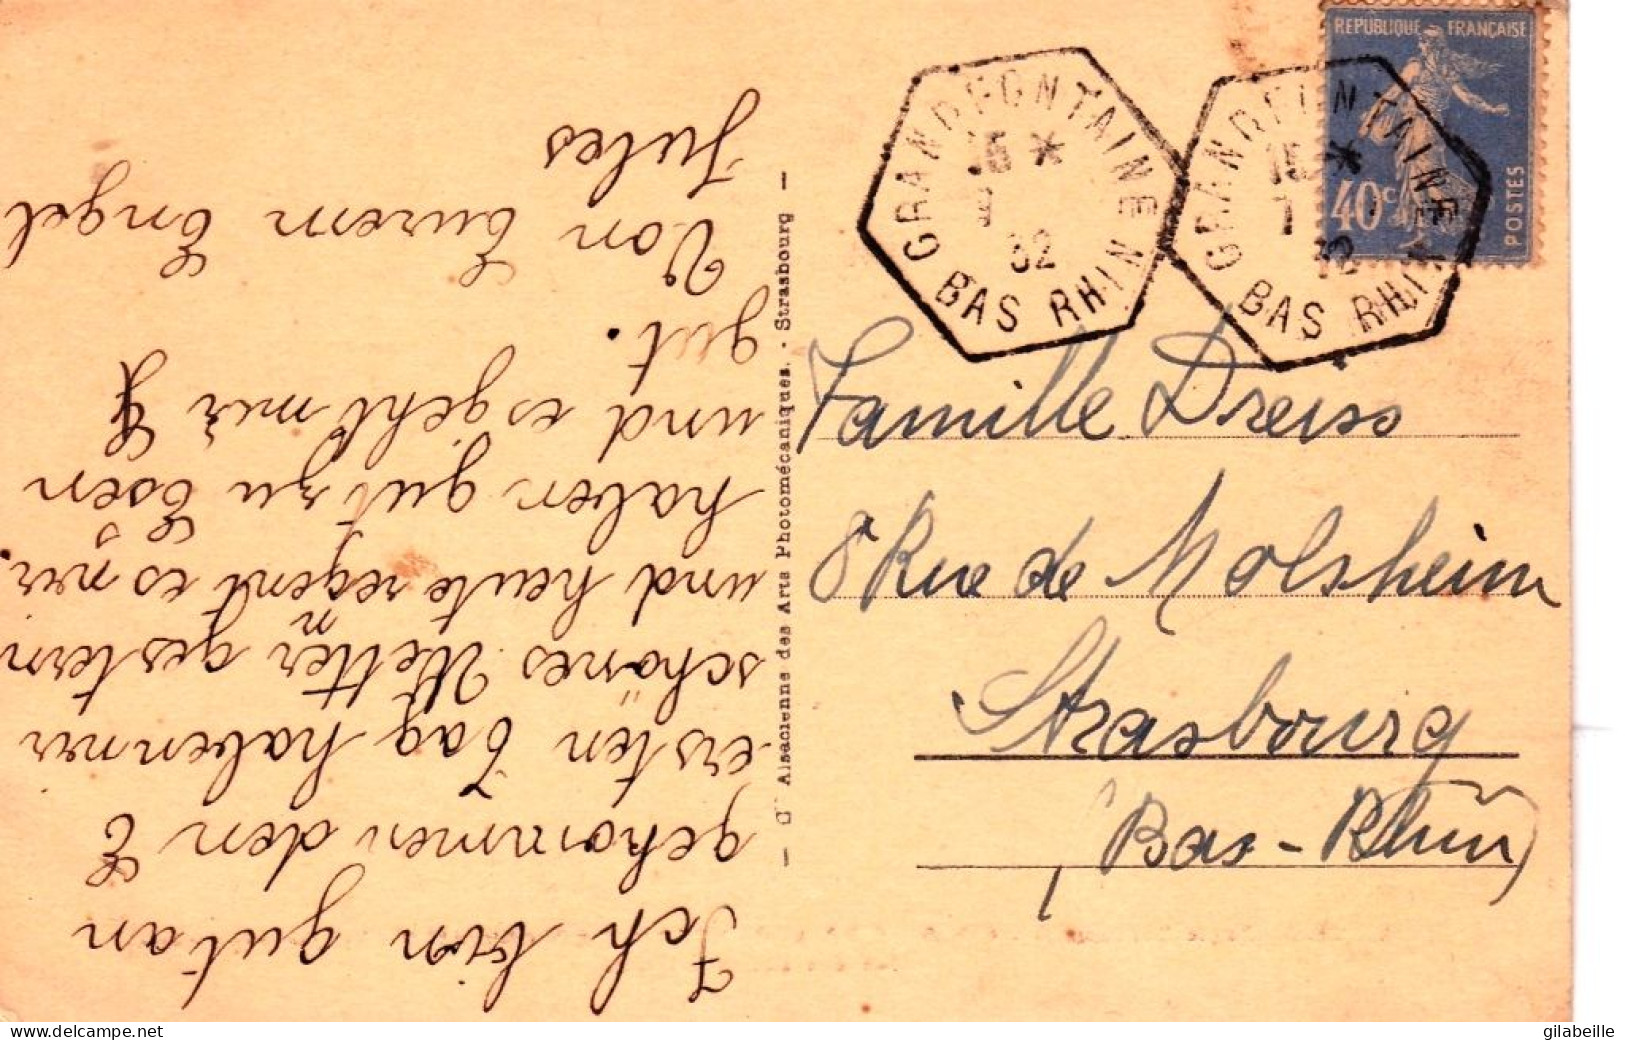 Ich bin gut an
gekommen den E
ersten Tag haben wir
schönes Wetter gestern
und heute regent es nur.
n
haben gut zu Esen
und es geht mir G
gut.
Von Eurem Engel
Jules
— Cie Alsacienne des Arts Photomécaniques. - Strasbourg —
GRANDFONTAINE
15 *
7
32
BAS RHIN
GRANDFONTAINE
15 *
7
32
BAS RHIN
REPUBLIQUE FRANÇAISE
40c
POSTES
Famille Dreiss
8 Rue de Molsheim
Strasbourg
(Bas-Rhin)
delcampe.net
gilabeille